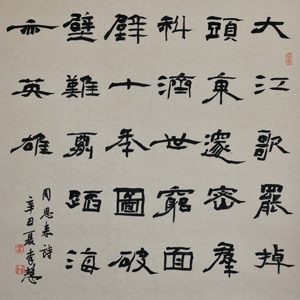 大江歌罷掉
頭東邃密羣
科濟世窮面
壁十年圖破
壁難酬蹈海
亦英雄
周恩来詩
辛丑夏李慧